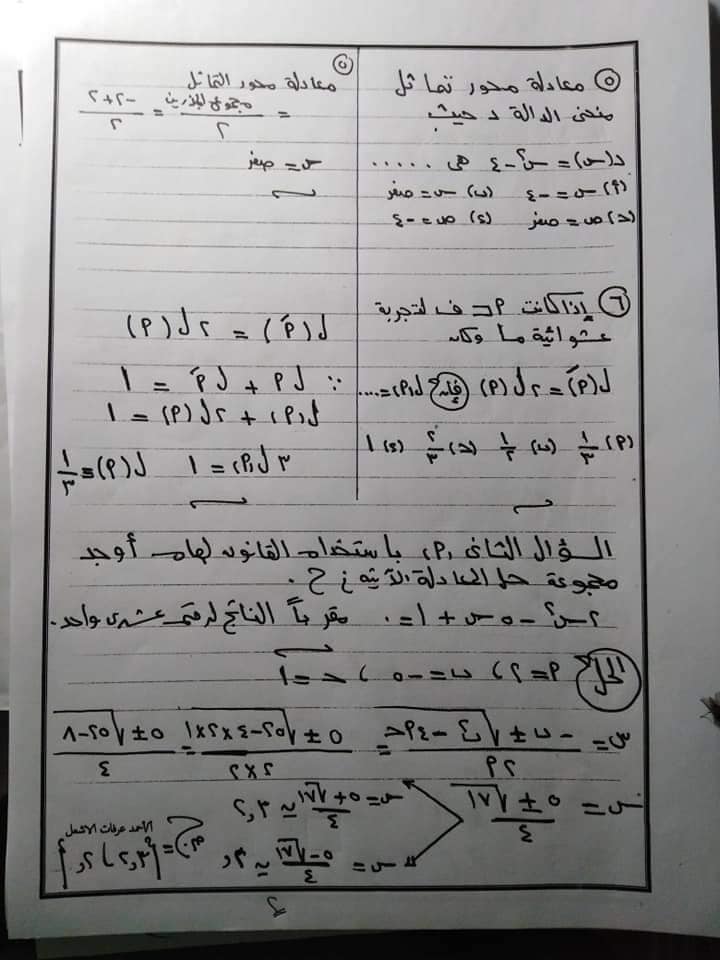 ٥ معادلة محور تماثل
منحنى الدالة د حيث
د(س) = س² - ٤ هى .....
(أ) س = -٤ (ب) س = صفر
(حـ) ص = صفر (د) ص = -٤
٥
معادلة محور التماثل
= مجموع الجذرين / ٢ = -٢+٢ / ٢
س = صفر
٦ إذا كانت أ ⊂ ف لتجربة
عشوائية ما وكان
ل(أَ) = ٢ ل(أ) فإن ل(أ) = ....
(أ) ١/٣ (ب) ١/٢ (حـ) ٢/٣ (د) ١
ل(أَ) = ٢ ل(أ)
∵ ل أ + ل أَ = ١
ل(أ) + ٢ ل(أ) = ١
٣ ل(أ) = ١ ل(أ) = ١/٣
السؤال الثانى (أ) باستخدام القانون العام أوجد
مجموعة حل المعادلة الآتية فى ح.
٢س² - ٥س + ١ = ٠ مقرباً الناتج لرقم عشرى واحد.
الحل أ = ٢ ، ب = -٥ ، حـ = ١
س = -ب ± √ب² - ٤أحـ / ٢أ = ٥ ± √٢٥-٤×٢×١ / ٢×٢ = ٥ ± √٢٥-٨ / ٤
س = ٥ ± √١٧ / ٤
س = ٥+√١٧ / ٤ ≃ ٢,٣
س = ٥-√١٧ / ٤ ≃ ,٢
م.ح = {٢,٣ ، ,٢}